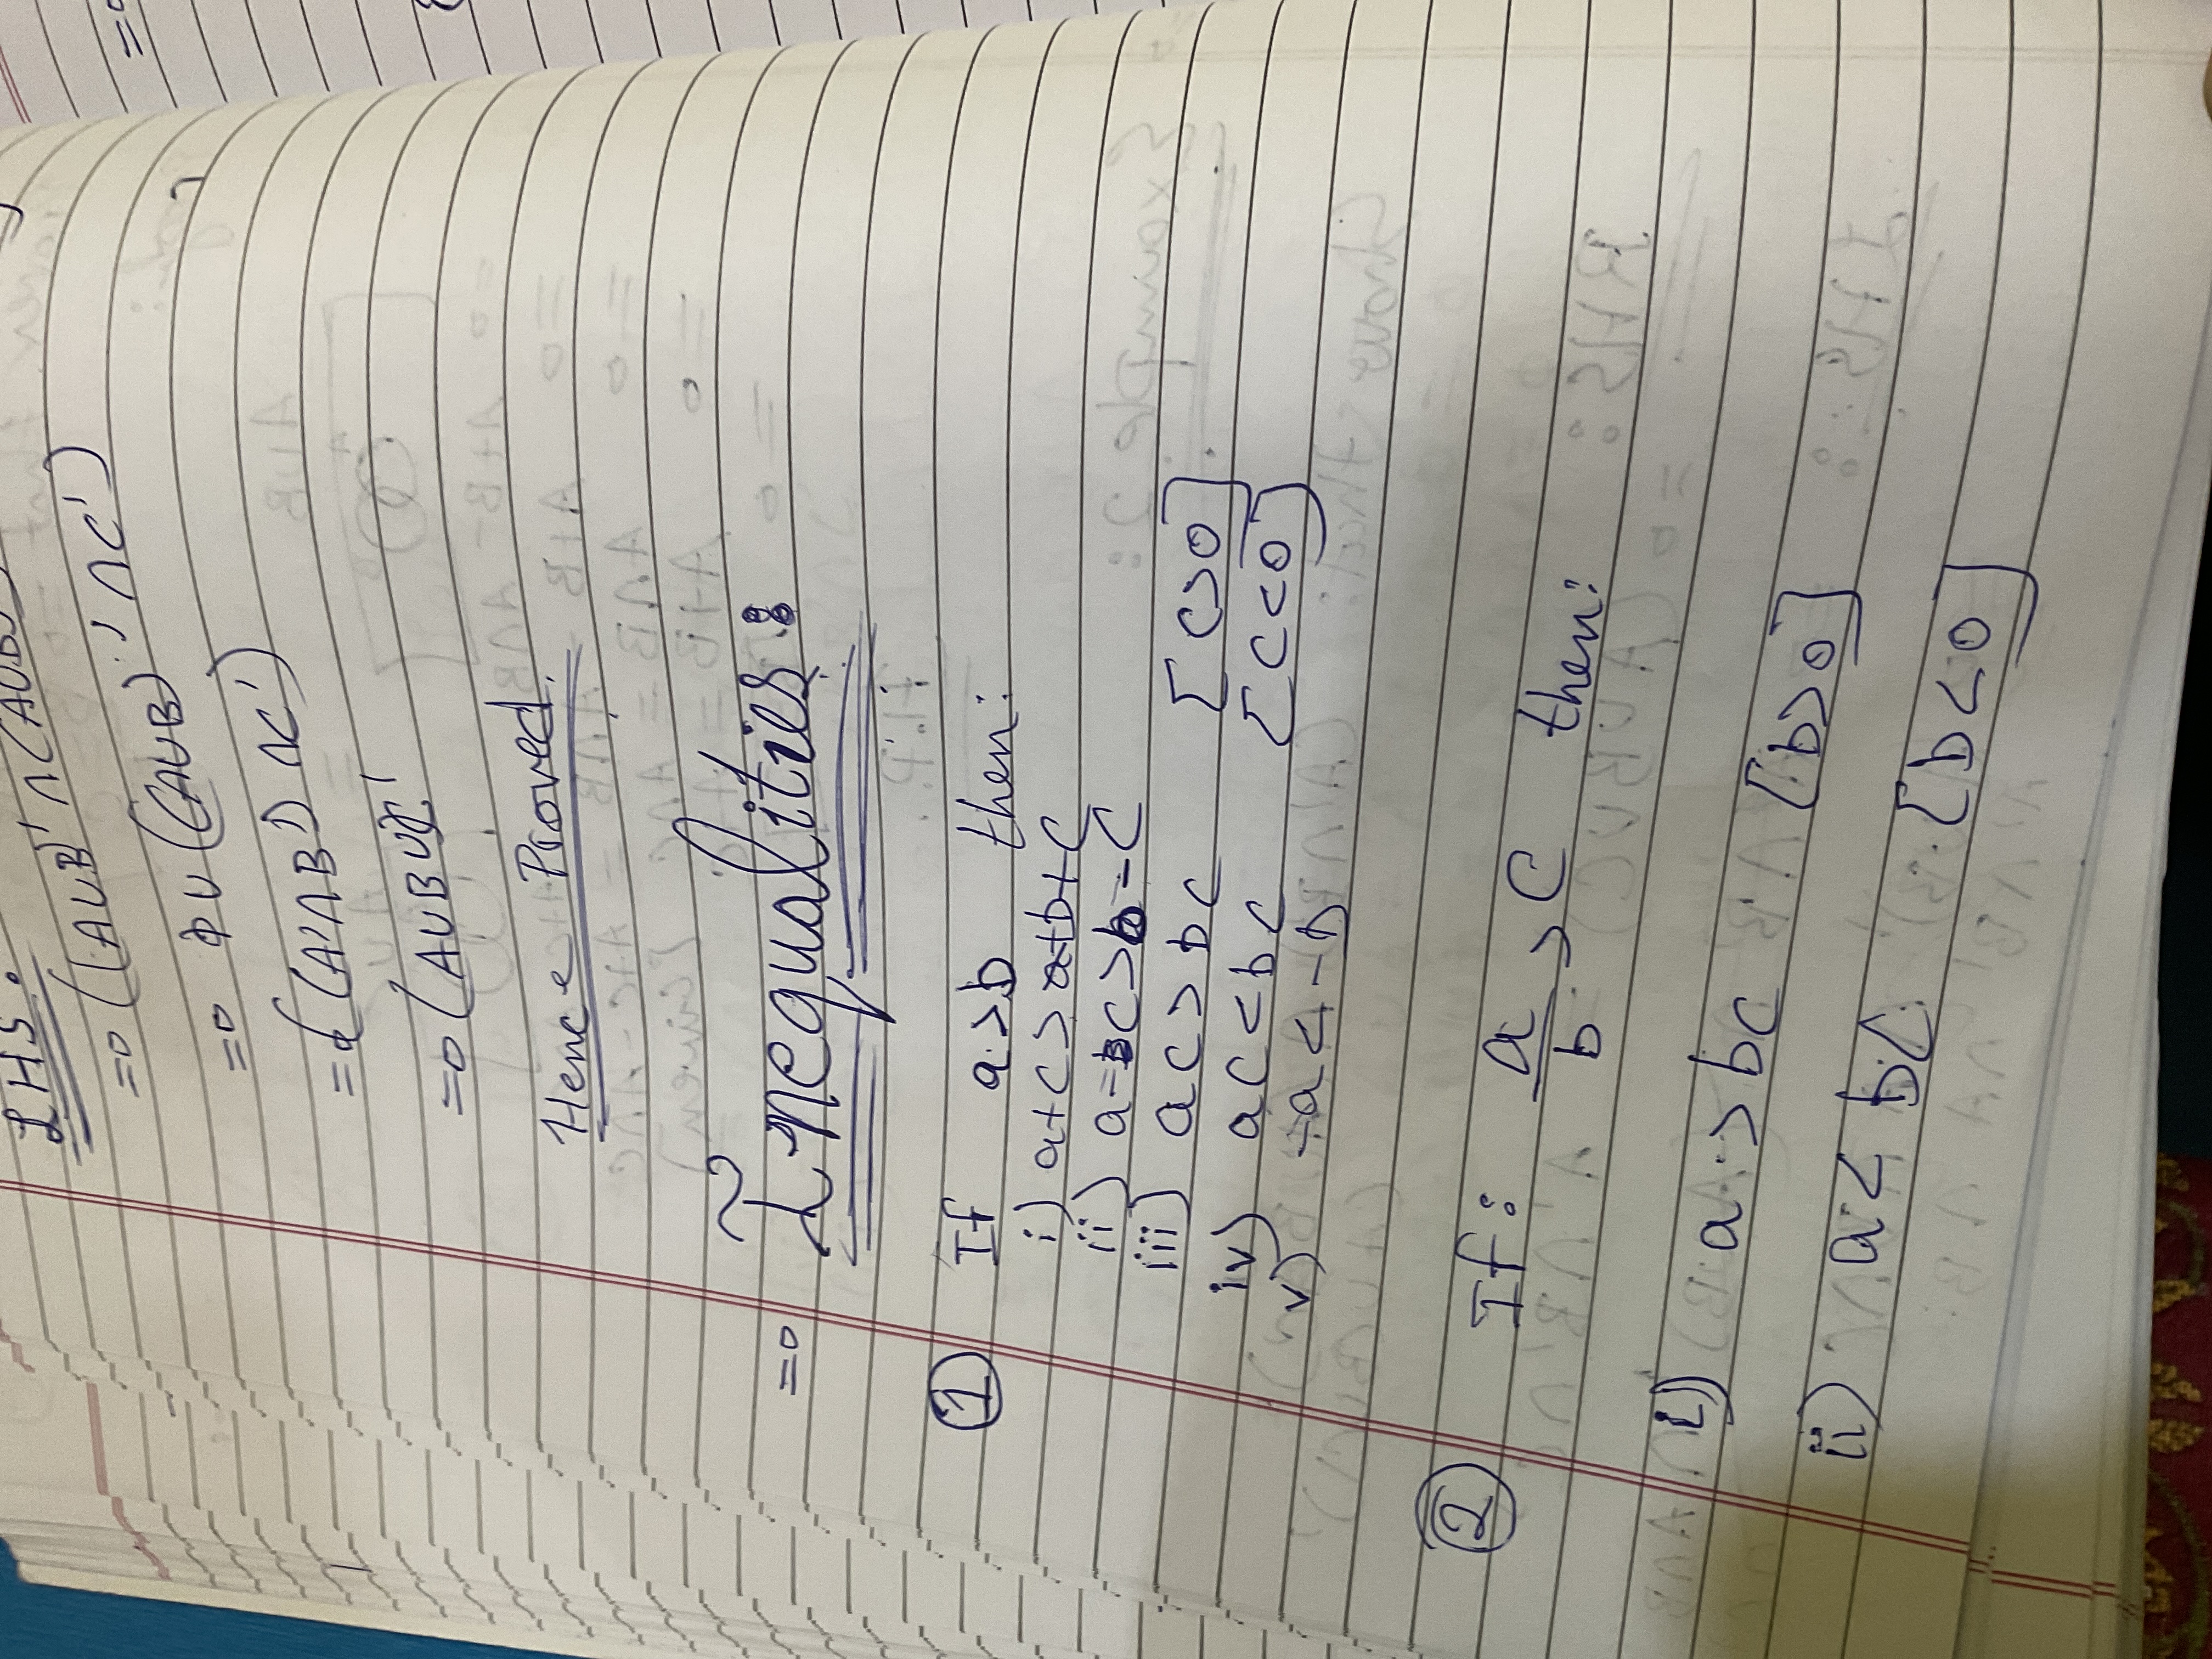 LHS:
⇒ ((AUB)' ∩ (AUB)) 
⇒ ((AUB)' ∩ C')
⇒ φ U ((AUB)' ∩ C')
⇒ (A'∩B') ∩ C')
⇒ (AUBUC)'
Hence Proved.
⇒ Inequalities:
① If a>b then:
i) a+c > b+c
ii) a-c > b-c
iii) ac > bc [c>0]
iv) ac < bc [c<0]
v) -a < -b
② If: a/b > c then:
i) a > bc [b>0]
ii) a < bc [b<0]